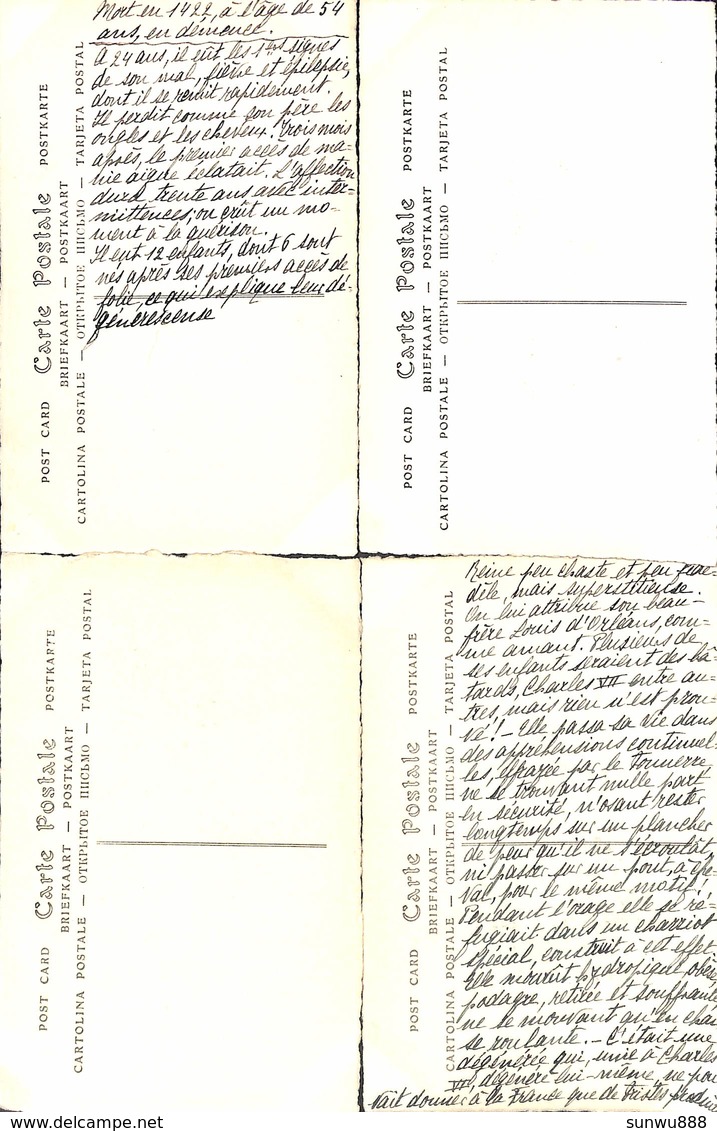 Mort en 1422, à l'âge de 54
ans, en démence.
A 24 ans, il eût les 1ers signes
de son mal, fièvre et épilepsie,
dont il se remit rapidement.
Il perdit comme son père les
ongles et les cheveux. Trois mois
après, le premier accès de ma-
nie aigue éclatait. L'affection
dura trente ans avec inter-
mittences; on crût un mo-
ment à la guérison.
Il eut 12 enfants, dont 6 sont
nés après ses premiers accès de
folie, ce qui explique leur dé-
générescense
POST CARD Carte Postale POSTKARTE
BRIEFKAART — POSTKAART
CARTOLINA POSTALE — ОТКРЫТОЕ ПИСЬМО — TARJETA POSTAL
POST CARD Carte Postale POSTKARTE
BRIEFKAART — POSTKAART
CARTOLINA POSTALE — ОТКРЫТОЕ ПИСЬМО — TARJETA POSTAL
POST CARD Carte Postale POSTKARTE
BRIEFKAART — POSTKAART
CARTOLINA POSTALE — ОТКРЫТОЕ ПИСЬМО — TARJETA POSTAL
POST CARD Carte Postale POSTKARTE
BRIEFKAART — POSTKAART
CARTOLINA POSTALE — ОТКРЫТОЕ ПИСЬМО — TARJETA POSTAL
Reine peu chaste et peu
dèle, mais superstitieuse.
On lui attribue son beau-
frère Louis d'Orléans, com-
me amant. Plusieurs de
ses enfants seraient des bâ-
tards, Charles VII entre au-
tres, mais rien n'est prou-
vé! — Elle passa sa vie dans
des appréhensions continuel-
les, effrayée par le tonnerre,
ne se trouvant nulle part
en sécurité, n'osant rester
longtemps sur un plancher
de peur qu'il ne s'écroulât,
ni passer sur un pont, à che-
val, pour le même motif!
Pendant l'orage elle se ré-
fugiait dans un charriot
spécial, construit à cet effet
Elle mourût hydropique, obèse
podagre, retirée et souffrante
ne se mouvant qu'en chai
se roulante. — C'était une
dégénérée qui, unie à Charles
VI, dégénéré lui-même, ne pou
vait donner à la France que de tristes produits
sunwu888